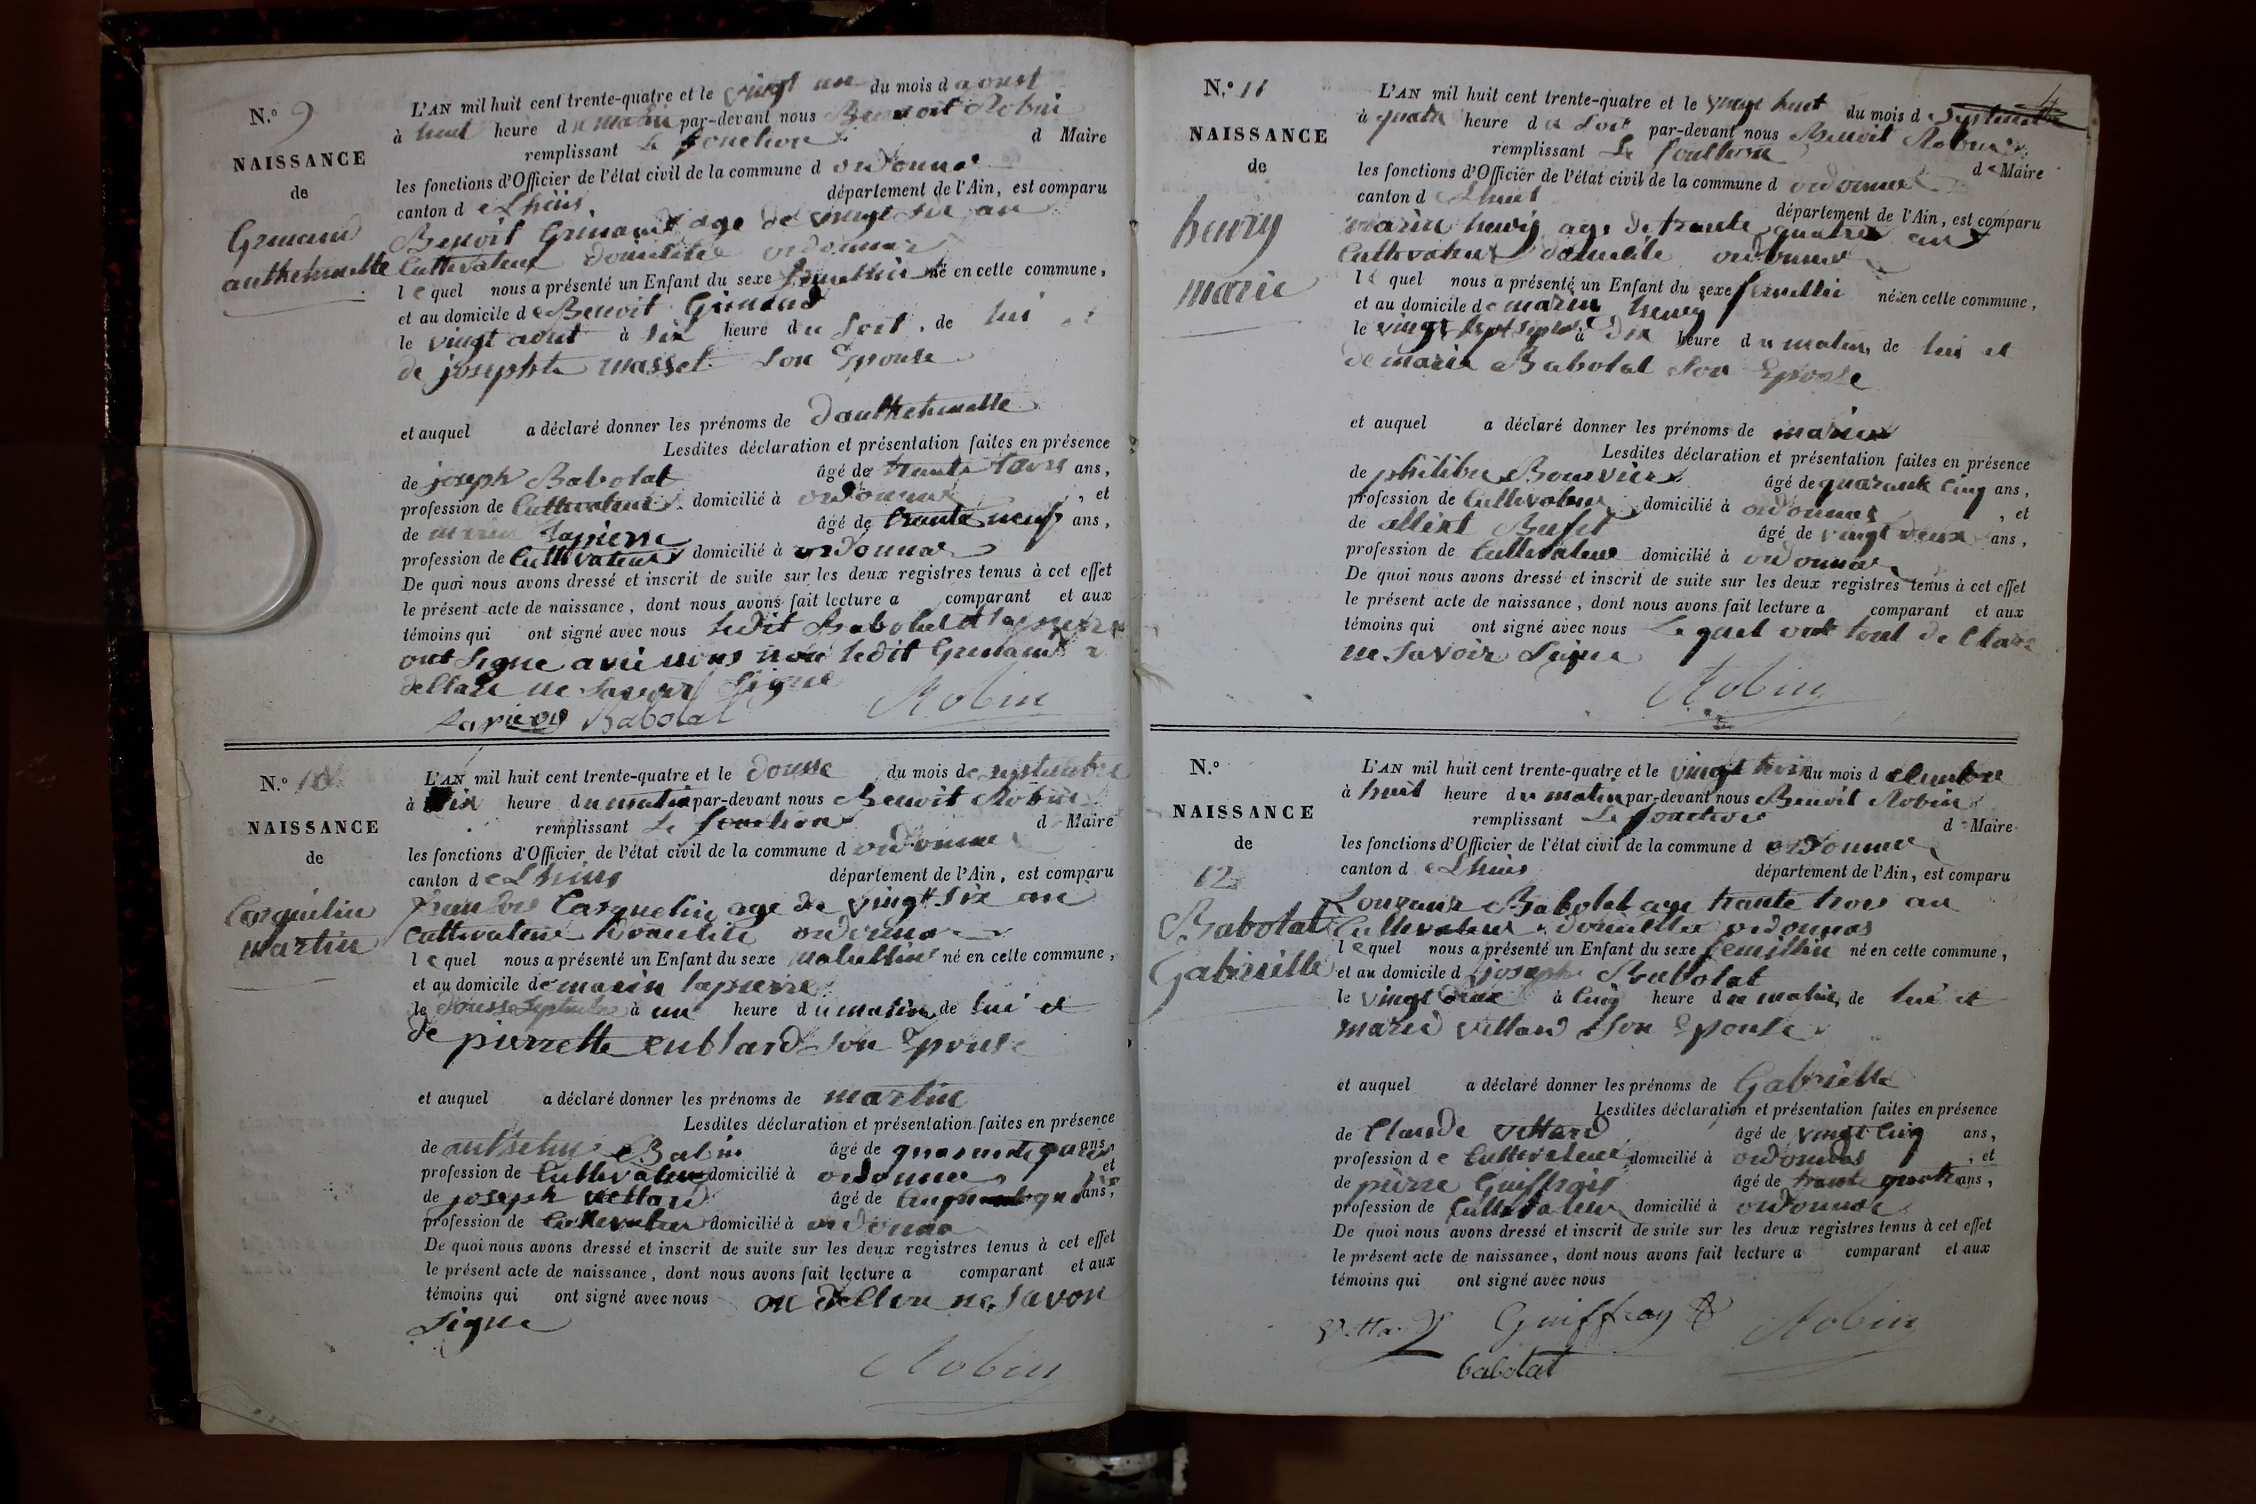 N.º 9
NAISSANCE
de
Grimand
anthelmette
L'AN mil huit cent trente-quatre et le vingt un du mois d aoust
à huit heure du matin par-devant nous Benoit Robin
remplissant Le fonction d Maire
les fonctions d'Officier de l'état civil de la commune d ordonnas
canton de Lhuis département de l'Ain, est comparu
Benoit Grimand age de vingt six an
Cultivateur domicilié ordonnas
lequel nous a présenté un Enfant du sexe né en cette commune,
et au domicile de Benoit Grimand
le vingt aout à six heure du soir, de lui et
de josephte masset son Epouse
et auquel a déclaré donner les prénoms de danthelmette
Lesdites déclaration et présentation faites en présence
de joseph Babolat âgé de trante ans,
profession de Cultivateur domicilié à ordonnas, et
de marin Lapierre âgé de trante neuf ans,
profession de Cultivateur domicilié à ordonnas
De quoi nous avons dressé et inscrit de suite sur les deux registres tenus à cet effet
le présent acte de naissance, dont nous avons fait lecture a comparant et aux
témoins qui ont signé avec nous ledit Babolat et lapierre
ont signe avec nous non ledit Grimand a
dellare ne savoir signe
Lapierre Babolat Robin
N.º 10
NAISSANCE
de
Carquelin
martin
L'AN mil huit cent trente-quatre et le dousse du mois de septembre
à dix heure du matin par-devant nous Benoit Robin
remplissant Le fonction d Maire
les fonctions d'Officier de l'état civil de la commune d ordonnas
canton de Lhuis département de l'Ain, est comparu
Carquelin age de vingt six ans
Cultivateur domicilié ordonnas
lequel nous a présenté un Enfant du sexe né en cette commune,
et au domicile de marin lapierre
le dousse septembre à un heure du matin de lui et
de pierrette cublard son Epouse
et auquel a déclaré donner les prénoms de martin
Lesdites déclaration et présentation faites en présence
de anthelme Babin âgé de ans,
profession de Cultivateur domicilié à ordonnas et
de joseph vettard âgé de ans,
profession de Cultivateur domicilié à ordonnas
De quoi nous avons dressé et inscrit de suite sur les deux registres tenus à cet effet
le présent acte de naissance, dont nous avons fait lecture a comparant et aux
témoins qui ont signé avec nous on dellere ne savoir
signe
Robin
N.º 11
NAISSANCE
de
henry
marie
L'AN mil huit cent trente-quatre et le vingt huit du mois d septembre
à quatre heure du soir par-devant nous Benoit Robin
remplissant Le fonction de Maire
les fonctions d'Officier de l'état civil de la commune d ordonnas
canton de Lhuis département de l'Ain, est comparu
marin henry age de trante quatre ans
Cultivateur domicilié ordonnas
lequel nous a présenté un Enfant du sexe femillin né en cette commune,
et au domicile de marin henry
le vingt sept septembre à dix heure du matin, de lui et
de marie Babolat son Epouse
et auquel a déclaré donner les prénoms de marie
Lesdites déclaration et présentation faites en présence
de philiber Bouvier âgé de quarante cinq ans,
profession de Cultivateur domicilié à ordonnas, et
de Bufet âgé de vingt deux ans,
profession de Cultivateur domicilié à ordonnas
De quoi nous avons dressé et inscrit de suite sur les deux registres tenus à cet effet
le présent acte de naissance, dont nous avons fait lecture a comparant et aux
témoins qui ont signé avec nous Le quel ont tout dellare
ne savoir signe
Robin
N.º
NAISSANCE
de
12
Babolat
Gabrielle
L'AN mil huit cent trente-quatre et le vingt trois du mois d
à huit heure du matin par-devant nous Benoit Robin
remplissant Le fonction d Maire
les fonctions d'Officier de l'état civil de la commune d ordonnas
canton d Lhuis département de l'Ain, est comparu
Babolat age trante trois an
Cultivateur domicillie ordonnas
lequel nous a présenté un Enfant du sexe femillin né en cette commune,
et au domicile d joseph Babolat
le vingt deux à cinq heure du matin, de lui et
marie vettard son Epouse
et auquel a déclaré donner les prénoms de Gabrielle
Lesdites déclaration et présentation faites en présence
de Claude vettard âgé de vingt cinq ans,
profession de Cultivateur domicilié à ordonnas, et
de pierre Guiffray âgé de trante quatre ans,
profession de Cultivateur domicilié à ordonnas
De quoi nous avons dressé et inscrit de suite sur les deux registres tenus à cet effet
le présent acte de naissance, dont nous avons fait lecture a comparant et aux
témoins qui ont signé avec nous
Guiffray Robin
babolat